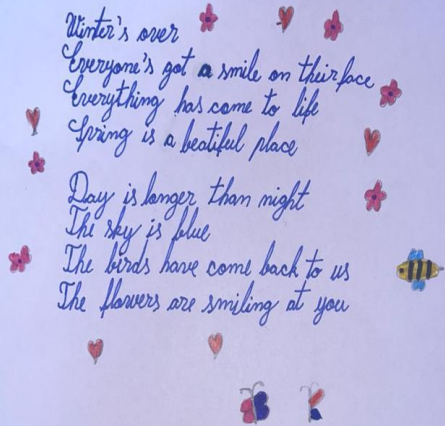 Winter's over
Everyone's got a smile on their face
Everything has come to life
Spring is a beatiful place
Day is longer than night
The sky is blue
The birds have come back to us
The flowers are smiling at you